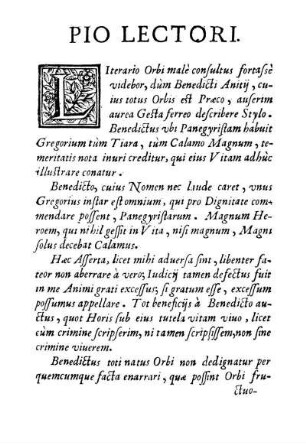 PIO LECTORI.
LIterario Orbi malè consultus fortassè
videbor, dùm Benedicti Anitij, cu-
ius totus Orbis est Præco, ausérim
aurea Gesta ferreo describere Stylo.
Benedictus vbi Panegyristam habuit
Gregorium tùm Tiara, tùm Calamo Magnum, te-
meritatis nota inuri creditur, qui eius Vitam adhùc
illustrare conatur.
Benedicto, cuius Nomen nec laude caret, vnus
Gregorius instar est omnium, qui pro Dignitate com-
mendare possent, Panegyristarum. Magnum He-
roem, qui nihil gessit in Vita, nisi magnum, Magni
solus decebat Calamus.
Hæc Asserta, licet mihi aduersa sint, libenter fa-
teor non aberrare à vero; Iudicij tamen defectus fuit
in me Animi grati excessus; si gratum esse, excessum
possumus appellare. Tot beneficijs à Benedicto au-
ctus, quot Horis sub eius tutela vitam viuo, licet
cùm crimine scripserim, ni tamen scripsissem, non sine
crimine viuerem.
Benedictus toti natus Orbi non dedignatur per
quemcumque facta enarrari, quæ possint Orbi fru-
ctuo-